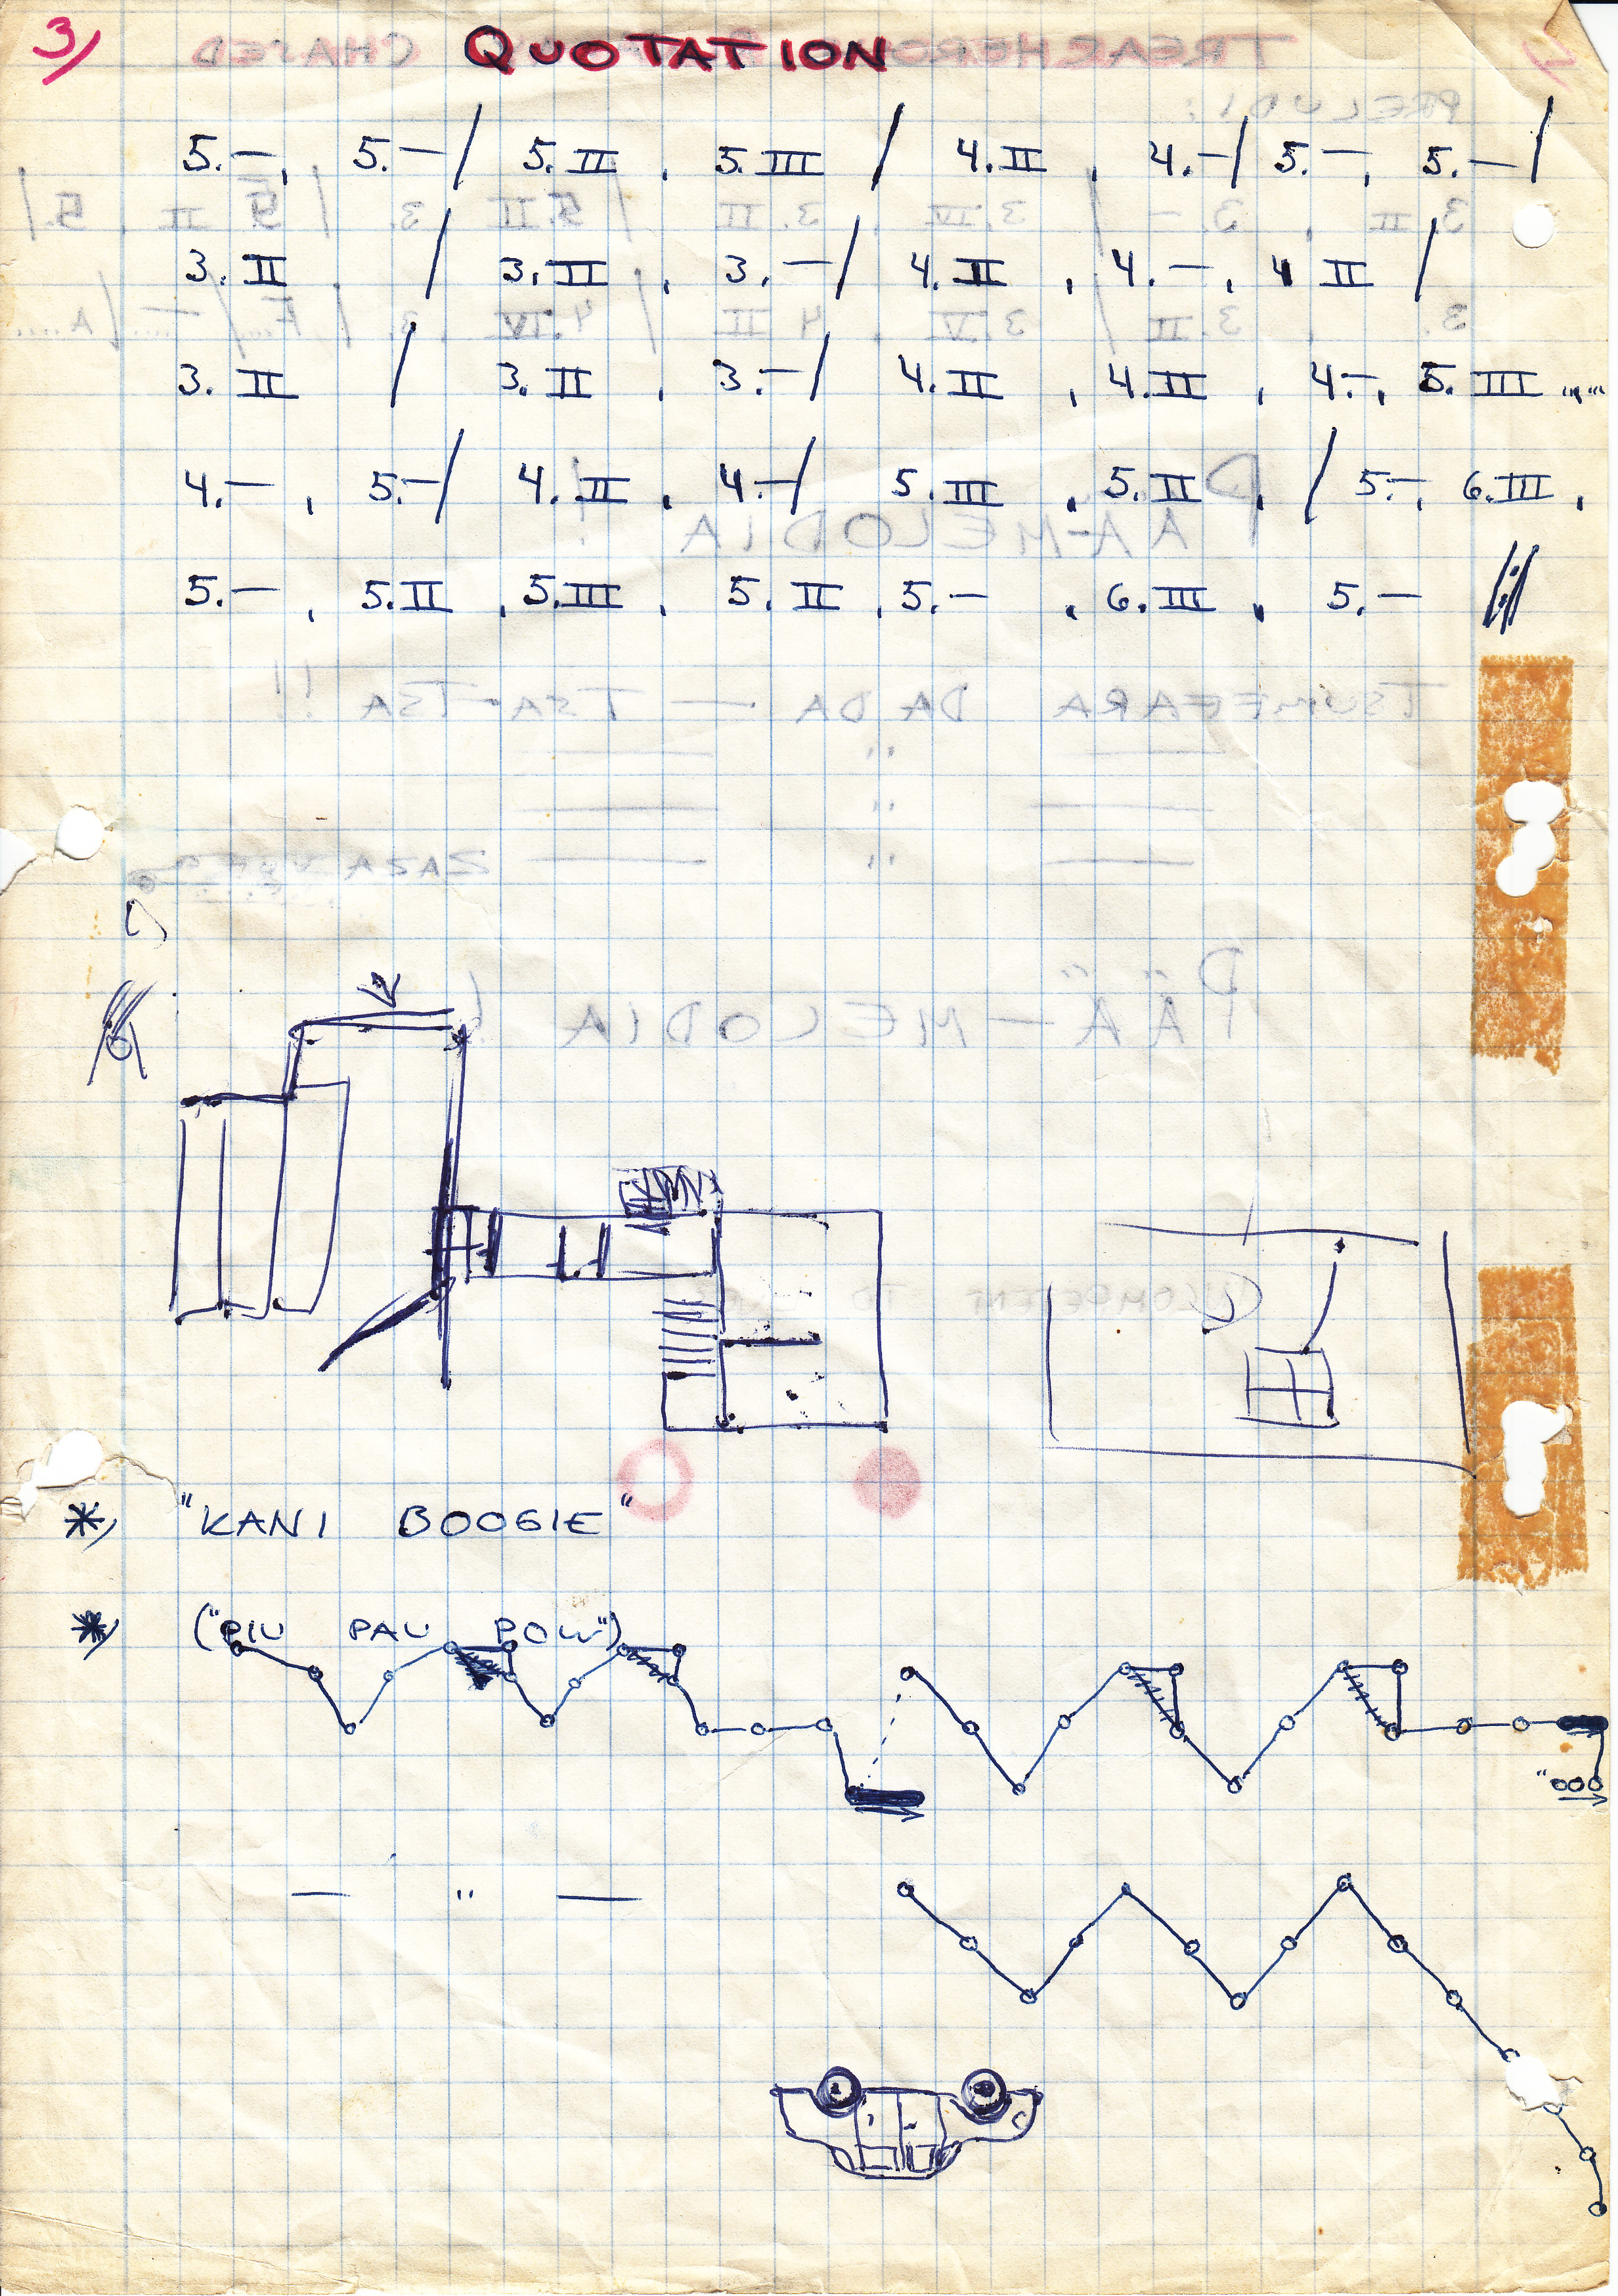 3/ QUOTATION
5.—, 5.—/ 5.II, 5.III / 4.II, 4.—/ 5.—, 5.—/
3.II / 3.II, 3.—/ 4.II, 4.—, 4 II /
3.II / 3.II, 3.—/ 4.II, 4.II, 4.—, 5.III ......
4.—, 5.—/ 4.II, 4.—/ 5.III, 5.II, / 5.—, 6.III,
5.—, 5.II, 5.III, 5.II, 5.—, 6.III, 5.— //
*) "KANI BOOGIE"
*) ("PIU PAU POW")
"000
— " —